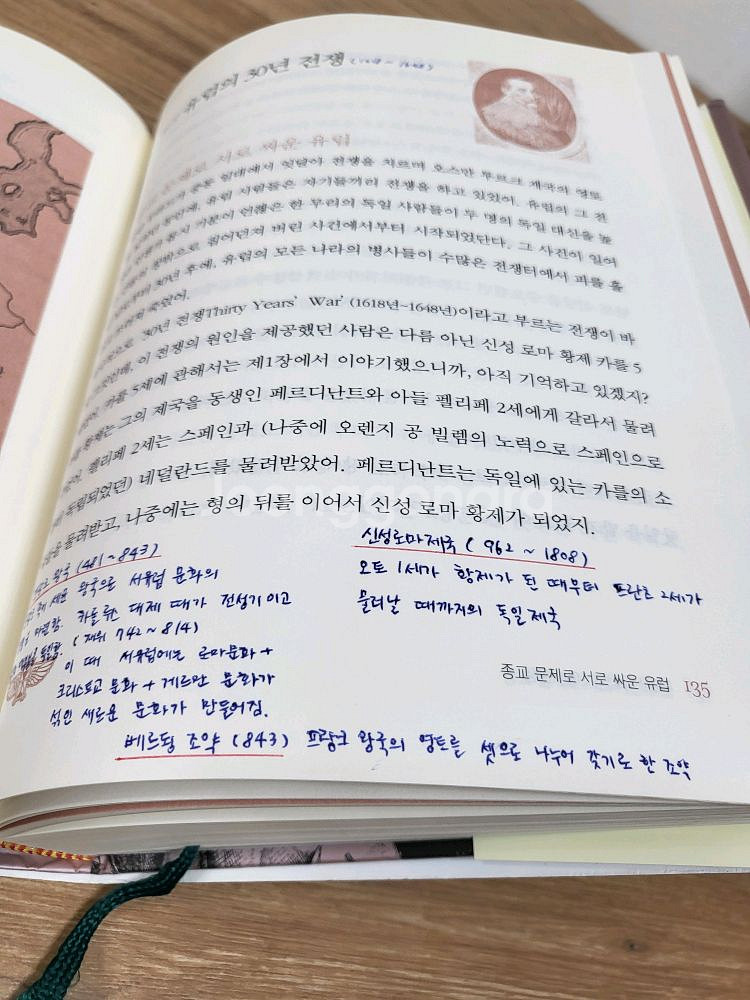 유럽의 30년 전쟁 (1618 ~ 1648)
서로 싸운 유럽
중동 일대에서 잇달아 전쟁을 치르며 오스만 투르크 제국의 영토
동안에, 유럽 사람들은 자기들끼리 전쟁을 하고 있었어. 유럽의 그 전
몹시 기분이 언짢은 한 무리의 독일 사람들이 두 명의 독일 대신을 높
창밖으로 집어던져 버린 사건에서부터 시작되었단다. 그 사건이 일어
30년 후에, 유럽의 모든 나라의 병사들이 수많은 전쟁터에서 피를 흘
죽었어.
'30년 전쟁Thirty Years' War' (1618년~1648년)이라고 부르는 전쟁이 바
이 전쟁의 원인을 제공했던 사람은 다름 아닌 신성 로마 황제 카를 5
카를 5세에 관해서는 제1장에서 이야기했으니까, 아직 기억하고 있겠지?
황제는 그의 제국을 동생인 페르디난트와 아들 펠리페 2세에게 갈라서 물려
펠리페 2세는 스페인과 (나중에 오렌지 공 빌렘의 노력으로 스페인으로
독립되었던) 네덜란드를 물려받았어. 페르디난트는 독일에 있는 카를의 소
물려받고, 나중에는 형의 뒤를 이어서 신성 로마 황제가 되었지.
왕국 (481 ~ 843)
세운 왕국으로 서유럽 문화의
마련함. 카롤루스 대제 때가 전성기이고
(재위 742 ~ 814)
이 때 서유럽에는 로마문화 +
크리스트교 문화 + 게르만 문화가
섞인 새로운 문화가 만들어짐.
신성로마제국 ( 962 ~ 1808)
오토 1세가 황제가 된 때부터 프란츠 2세가
물러날 때까지의 독일제국
베르됭 조약 (843) 프랑크 왕국의 영토를 셋으로 나누어 갖기로 한 조약
종교 문제로 서로 싸운 유럽 135